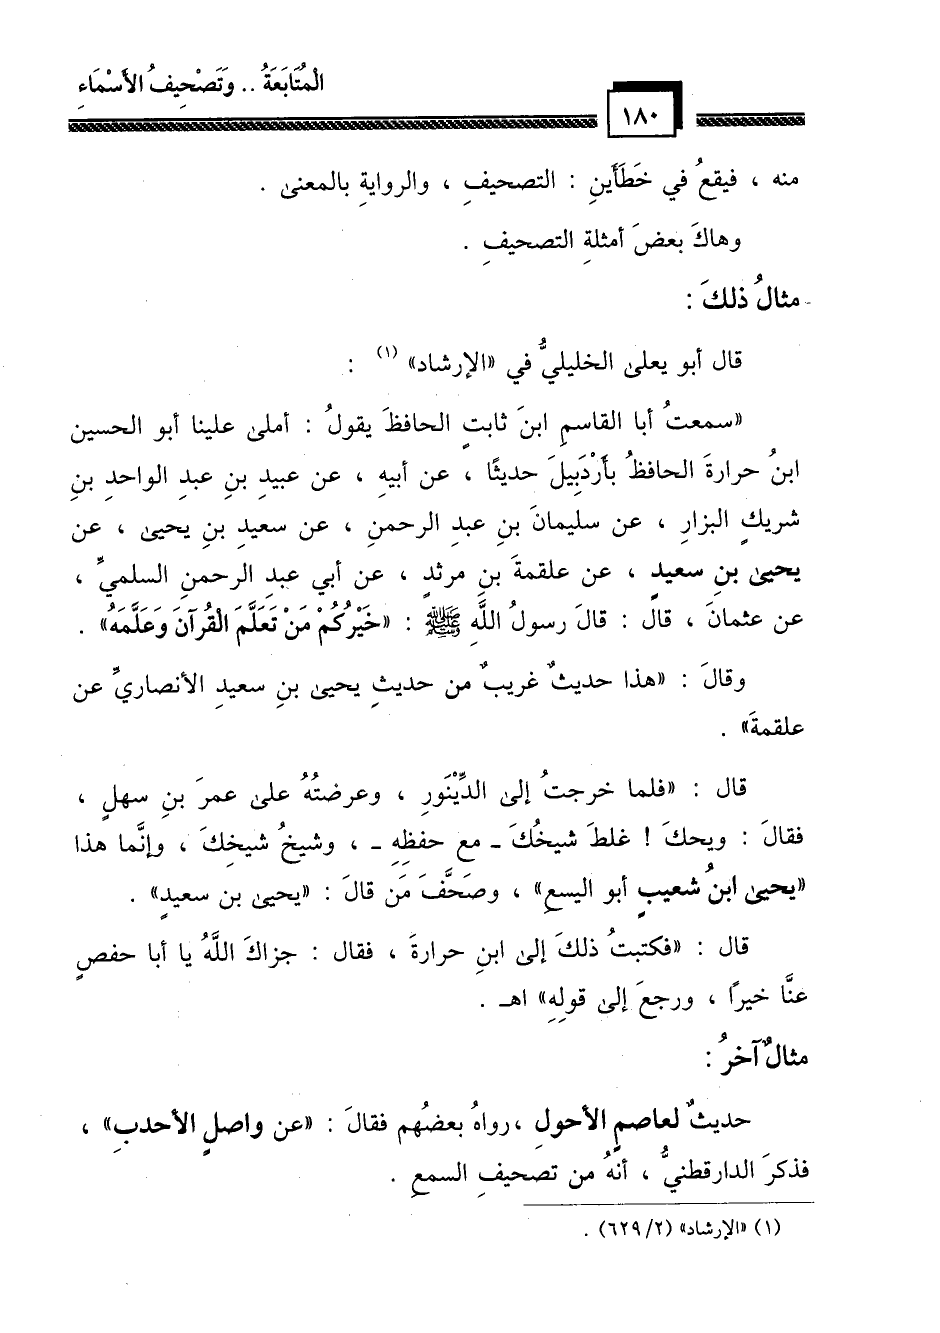 المُتَابَعَةُ .. وَتَصْحِيفُ الأَسْمَاءِ
١٨٠
منه ، فيقعُ في خَطَأَينِ : التصحيفِ ، والروايةِ بالمعنى .
وهاكَ بعضَ أمثلةِ التصحيفِ .
مثالُ ذلكَ :
قال أبو يعلى الخليليُّ في «الإرشاد» (١) :
«سمعتُ أبا القاسمِ ابنَ ثابتٍ الحافظَ يقولُ : أملى علينا أبو الحسين
ابنُ حرارةَ الحافظُ بأَرْدَبِيلَ حديثًا ، عن أبيهِ ، عن عبيدِ بنِ عبدِ الواحدِ بنِ
شريكٍ البزارِ ، عن سليمانَ بنِ عبدِ الرحمنِ ، عن سعيدِ بنِ يحيى ، عن
يحيى بنِ سعيدٍ ، عن علقمةَ بنِ مرثدٍ ، عن أبي عبدِ الرحمنِ السلميِّ ،
عن عثمانَ ، قال : قالَ رسولُ اللَّهِ ﷺ : «خَيْرُكُمْ مَنْ تَعَلَّمَ القُرآنَ وَعَلَّمَهُ» .
وقالَ : «هذا حديثٌ غريبٌ من حديثِ يحيى بنِ سعيدِ الأنصاريِّ عن
علقمةَ» .
قال : «فلما خرجتُ إلى الدِّيْنَوَرِ ، وعرضتُهُ على عمرَ بنِ سهلٍ ،
فقالَ : ويحكَ ! غلطَ شيخُكَ ـ مع حفظِهِ ـ ، وشيخُ شيخِكَ ، وإنَّما هذا
«يحيى ابنُ شعيبٍ أبو اليسعِ» ، وصَحَّفَ مَن قالَ : «يحيى بن سعيدٍ» .
قال : «فكتبتُ ذلكَ إلى ابنِ حرارةَ ، فقال : جزاكَ اللَّهُ يا أبا حفصٍ
عنَّا خيرًا ، ورجعَ إلى قولِهِ» اهـ .
مثالٌ آخرُ :
حديثٌ لعاصمٍ الأحولِ ، رواهُ بعضُهم فقالَ : «عن واصلٍ الأحدبِ» ،
فذكرَ الدارقطنيُّ ، أنهُ من تصحيفِ السمعِ .
(١) «الإرشاد» (٢/ ٦٢٩) .